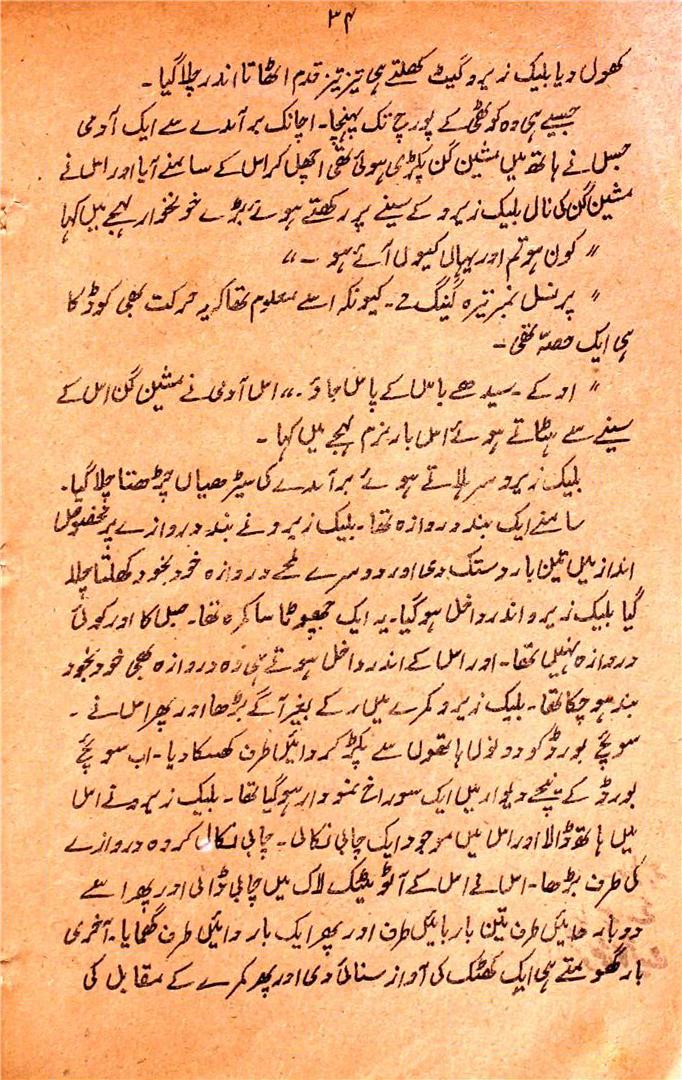 ۳۴
کھول دیا بلیک زیرو گیٹ کھلتے ہی تیز تیز قدم اٹھاتا اندر چلا گیا۔
جیسے ہی وہ کوٹھی کے پورچ تک پہنچا۔ اچانک برآمدے سے ایک آدمی
جس نے ہاتھ میں مشین گن پکڑی ہوئی تھی اچھل کر اس کے سامنے آیا اور اس نے
مشین گن کی نال بلیک زیرو کے سینے پر رکھتے ہوئے بڑے خونخوار لہجے میں کہا
" کون ہو تم اور یہاں کیوں آئے ہو ۔"
" پرنسل نمبر تیرہ گینگ ۔ کیونکہ اسے معلوم تھا کہ یہ حرکت بھی کوڈ کا
ہی ایک حصہ تھی ۔
" او کے ۔ سیدھے باس کے پاس جاؤ ۔" اس آدمی نے مشین گن اس کے
سینے سے ہٹاتے ہوئے اس بار نرم لہجے میں کہا ۔
بلیک زیرو سر ہلاتے ہوئے برآمدے کی سیڑھیاں چڑھتا چلا گیا۔
سامنے ایک بند دروازہ تھا۔ بلیک زیرو نے بند دروازے پر مخصوص
انداز میں تین بار دستک دی اور دوسرے لمحے دروازہ خود بخود کھلتا چلا
گیا بلیک زیرو اندر داخل ہو گیا۔ یہ ایک چھوٹا سا کمرہ تھا۔ جس کا اور کوئی
دروازہ نہیں تھا۔ اور اس کے اندر داخل ہوتے ہی وہ دروازہ بھی خود بخود
بند ہو چکا تھا۔ بلیک زیرو کمرے میں رکے بغیر آگے بڑھا اور پھر اس نے ۔
سوئچ بورڈ کو دونوں ہاتھوں سے پکڑ کر دائیں طرف کھسکا دیا۔ اب سوئچ
بورڈ کے نیچے دیوار میں ایک سوراخ نمودار ہو گیا تھا۔ بلیک زیرو نے اس
میں ہاتھ ڈالا اور اس میں موجود ایک چابی نکالی۔ چابی نکال کر وہ دروازے
کی طرف بڑھا۔ اس نے اس کے آٹومیٹک لاک میں چابی ڈالی اور پھر اسے
دو بار دائیں طرف تین بار بائیں طرف اور پھر ایک بار دائیں طرف گھمایا۔ آخری
بار گھومتے ہی ایک کھٹک کی آواز سنائی دی اور پھر کمرے کے مقابل کی